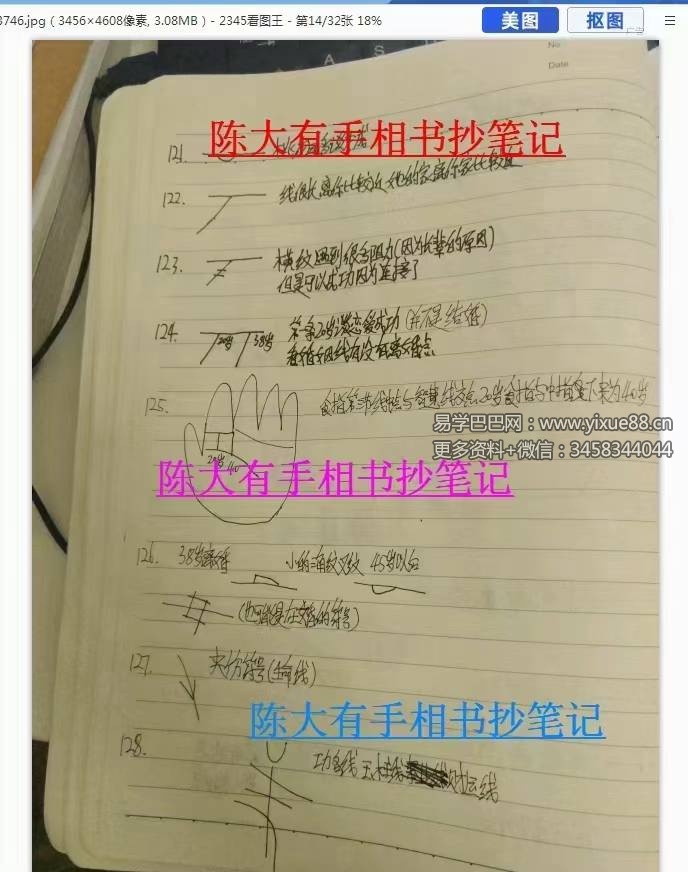 3746.jpg（3456×4608像素, 3.08MB）- 2345看图王 - 第14/32张 18%
美图
抠图
广告
No
Date
A S
陈大有手相书抄笔记
121.
122.
线很长离你比较近 她的家离你家比较
123.
横纹遇到很多阻力(因为长辈的原因)
但是可以成功因为连接了
124.
20岁 38岁
第一条20岁谈恋爱成功(并不是结婚)
看婚姻线有没有离婚点
125.
食指第一节线 与智慧线 20岁食指与中指 下来为40岁
易学巴巴网：www.yixue88.cn
更多资料+微信：3458344044
20岁 40
陈大有手相书抄笔记
126. 38岁离婚
小的三角纹叉纹 45岁以后
(也可能是在离婚的符号)
127.
灾伤符号(生命线)
陈大有手相书抄笔记
128.
功名线 玉柱线 财运线